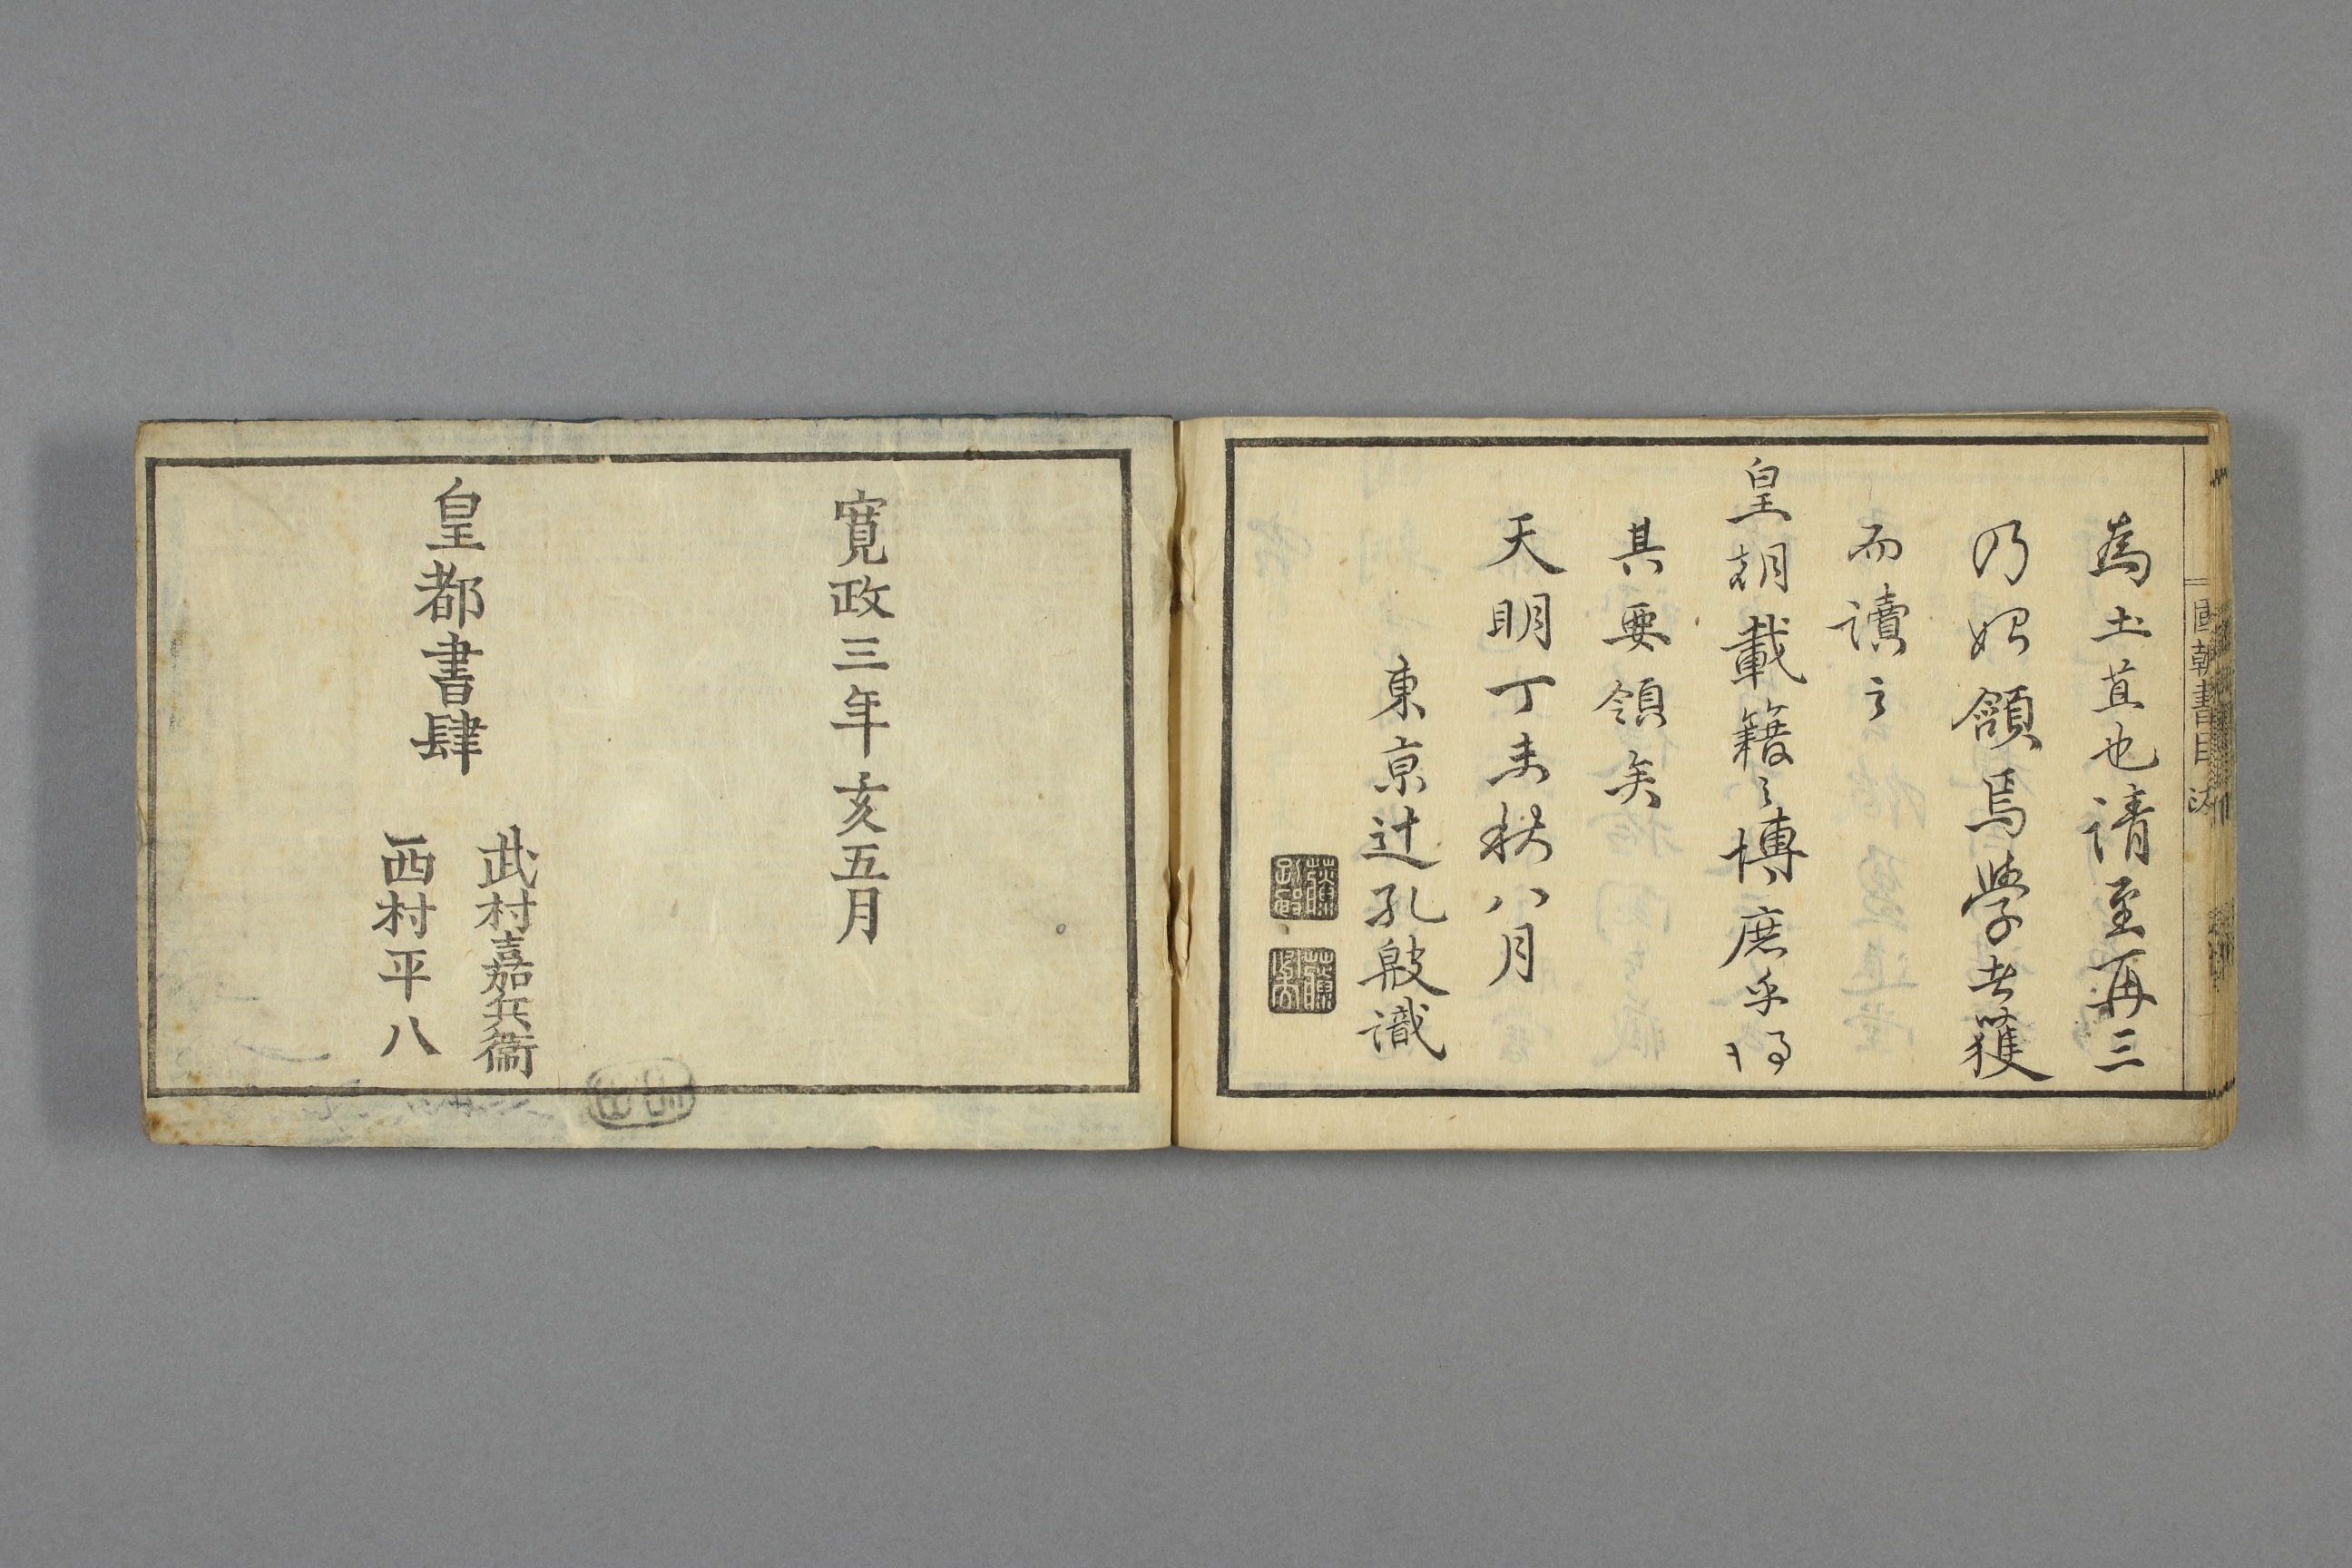 為土苴也請至再三
乃始頷焉學者獲
而讀之
皇朝載籍之博庶乎得
其要領矣
天明丁未秋八月
東京辻孔彀識
國朝書目
寛政三年亥五月
皇都書肆
武村嘉兵衞
西村平八